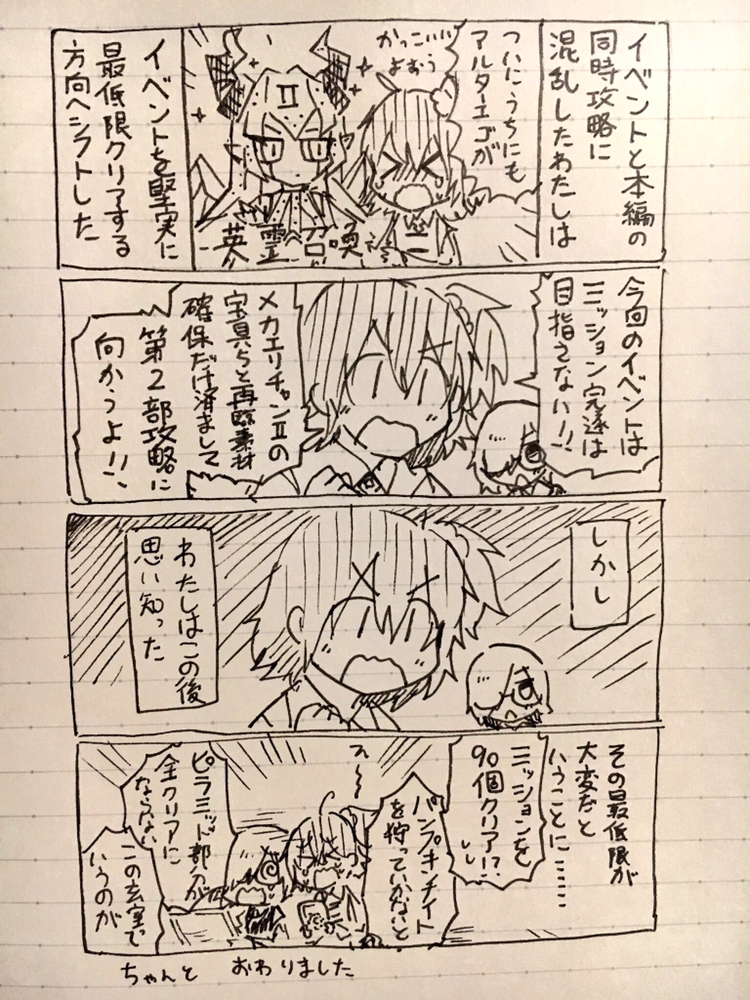 イベントと本編の
同時攻略に
混乱したわたしは
ついにうちにも
アルターエゴが
かっこいい
よおう
Ⅱ
英霊召喚
イベントを堅実に
最低限クリアする
方向へシフトした
今回のイベントは
ミッション完遂は
目指さない!!
メカエリチャンⅡの
宝具5と再臨素材
確保だけ済まして
第2部攻略に
向かうよ!!
しかし
わたしはこの後
思い知った
その最低限が
大変だと
いうことに……
ミッションを
90個クリアに?
パンプキンナイト
を狩っていかないと
え〜〜
ピラミッド部分が
全クリアに
ならない
この玄室で
いうのが
ちゃんと おわりました